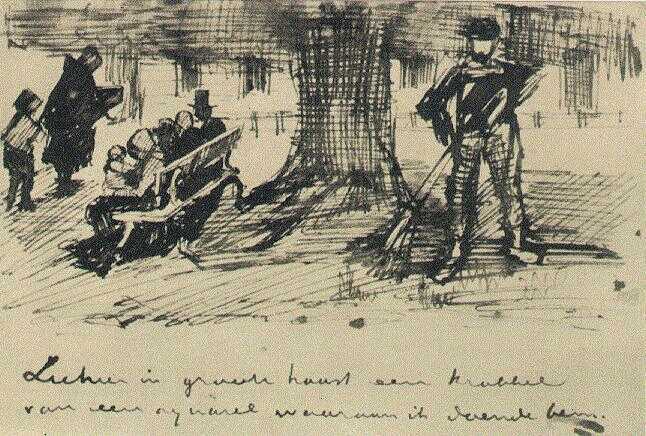 in groote haast een krabbel
van een aquarel waaraan ik doende ben.